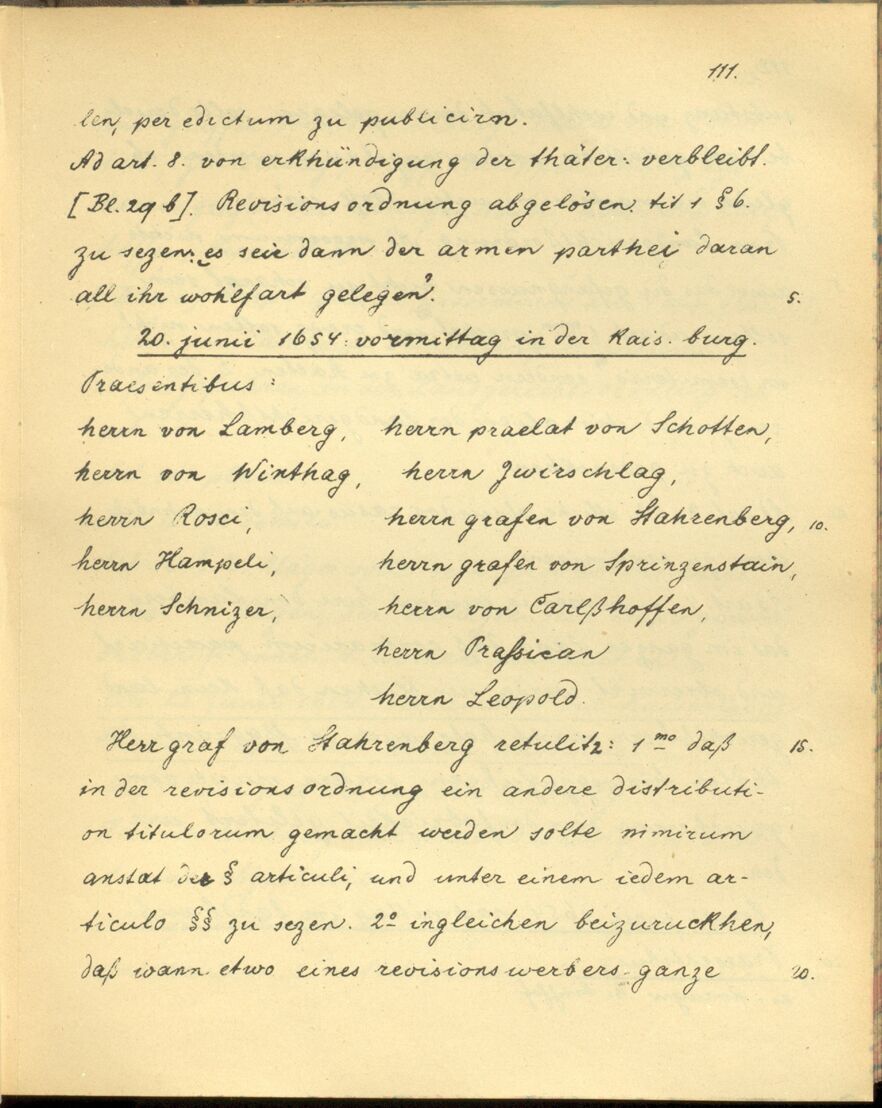 111.
len, per edictum zu publicirn.
Ad art. 8. von erkhündigung der thäter: verbleibt.
[Bl. 29 b]. Revisionsordnung abgelösen: tit 1 § 6.
zu sezen: „es seie dann der armen parthei daran
all ihr wohlfart gelegen“. 5.
20. junii 1654: vormittag in der kais. burg.
Praesentibus:
herrn von Lamberg, herrn praelat von Schotten,
herrn von Winthag, herrn Zwirschlag,
herrn Rosci, herrn grafen von Stahrenberg, 10.
herrn Hampeli, herrn grafen von Sprinzenstain,
herrn Schnizer, herrn von Carlßhoffen,
herrn Praſsican
herrn Leopold.
Herr graf von Stahrenberg retulit: 1mo daß 15.
in der revisionsordnung ein andere distributi-
on titulorum gemacht werden solte nimirum
anstat der § articuli, und unter einem iedem ar-
ticulo §§ zu sezen. 2o ingleichen beizuruckhen,
daß wann etwo eines revisionswerbers ganze 20.